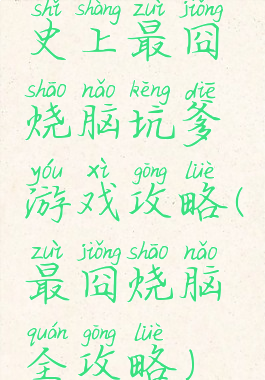 shǐ shàng zuì jiǒng
史上最囧
shāo nǎo kēng diē
烧脑坑爹
yóu xì gōng lüè
游戏攻略(
zuì jiǒng shāo nǎo
最囧烧脑
quán gōng lüè
全攻略)